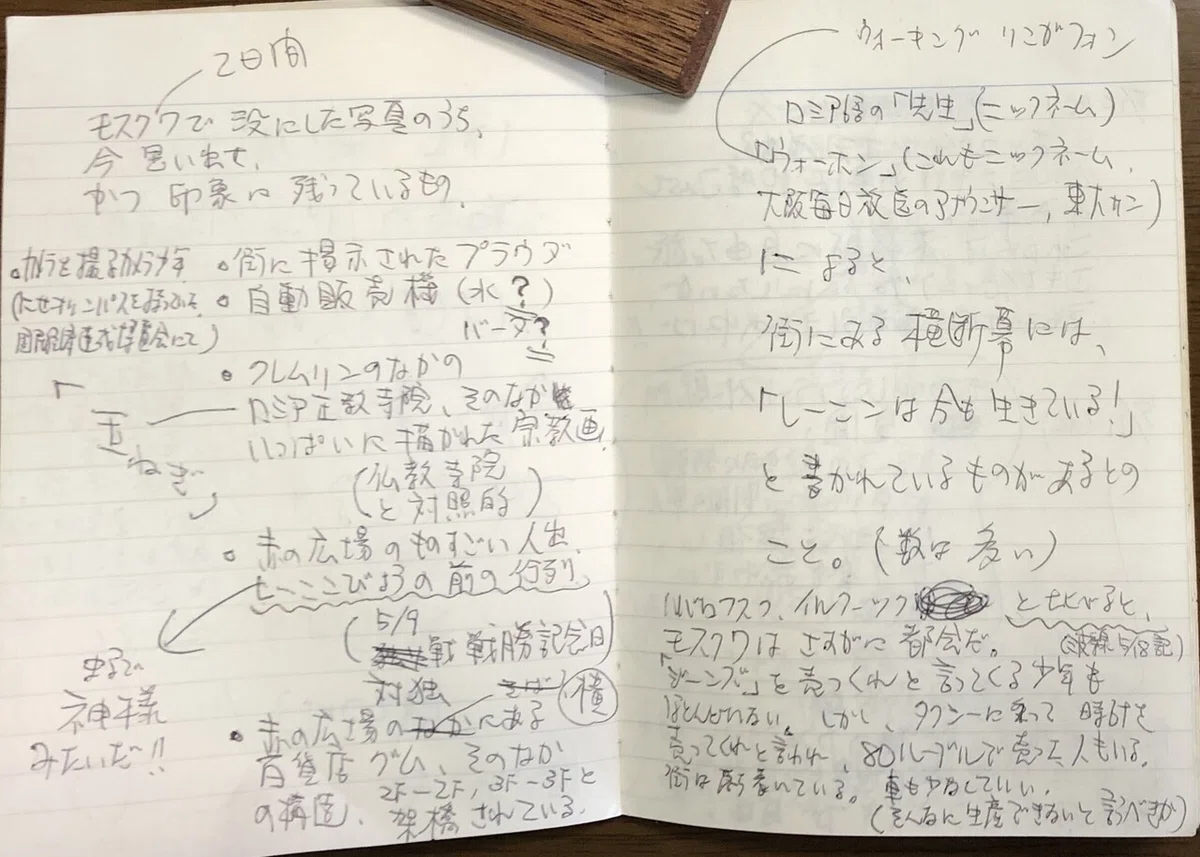 2日間
モスクワで没にした写真のうち、
今思い出せ、
かつ印象に残っているもの。
・カメラを撮るカメラ少年
・街に掲示されたプラウダ
・自動販売機(水?)
バーダ?
・クレムリンのなかの
ロシア正教寺院、そのなか
いっぱいに描かれた宗教画。
(仏教寺院
と対照的)
「玉
ねぎ」
・赤の広場のものすごい人出、
レーニンびょうの前の行列。
(5/9
戦戦勝記念日)
対独
まるで
神様
みたいだ!!
・赤の広場のなかにある
そば
横
百貨店グム、そのなか
の構造、2F-2F, 3F-3Fと
架橋されている。
ウォーキングリンガフォン
ロシア語の「先生」(ニックネーム)
「ウォーホン」(これもニックネーム、
大阪毎日放送のアナウンサー、東大カン)
によると、
街にある横断幕には、
「レーニンは今も生きている!」
と書かれているものがあるとの
こと。(数は多い)
ハバロフスク、イルクーツク と比べると、
モスクワはさすがに都会だ。(波線5/18記)
「ジーンズ」を売ってくれと言ってくる少年も
ほとんどいない。しかし、タクシーに乗って時計を
売ってくれと言われ、80ルーブルで売った人もいる。
街は落着いている。車も少なくていい。
(そんなに生産できないと言うべきか)